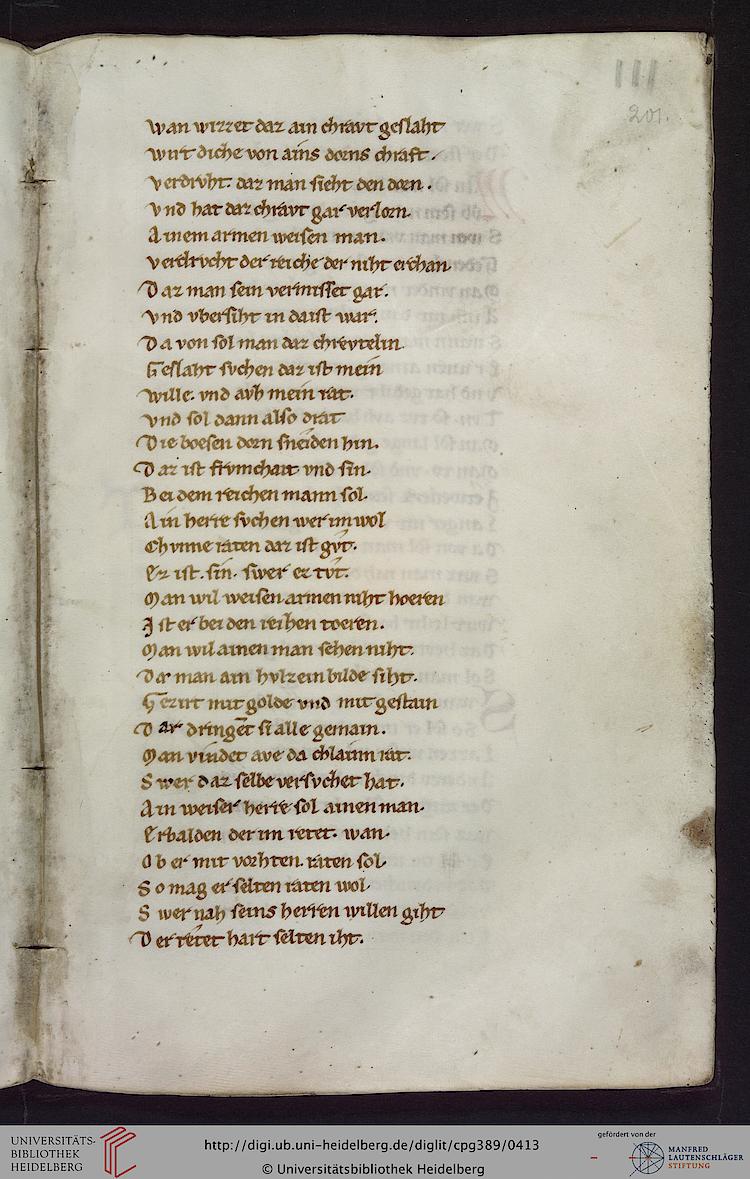 111
201.
wan wirret daz ain chravt geslaht
wirt diche von ains dorns chraft.
verdrvht. daz man sieht den dorn.
vnd hat daz chravt gar verlorn.
Ainem armen weisen man.
verdrvcht der reiche der niht erchan
Daz man sein vermisset gar.
vnd vbersiht in da ist war.
Da von sol man daz chrevtelin
Geslaht svchen daz ist mein
wille. vnd avh mein rat.
vnd sol dann also drat
Die boesen dorn sneiden hin.
Daz ist frvmchait vnd sin.
Bei dem reichen mann sol.
Ain herre svchen wer im wol
Chvnne raten daz ist gvt.
Ez ist. sin. swer ez tvt.
Man wil weisen armen niht hoeren
Ist er bei den reihen toeren.
Man wil ainen man sehen niht.
Da man ain hvlzein bilde siht.
Geziert mit golde vnd mit gestain
Dar dringet si alle gemain.
Man vindet ave da chlainn rat.
Swer daz selbe versvchet hat.
Ain weiser herre sol ainen man.
Erbalden der im retet. wan.
Ob er mit vorhten. raten sol.
So mag er selten raten wol.
Swer nah seins herren willen giht
Der retet hart selten iht.
UNIVERSITÄTS-
BIBLIOTHEK
HEIDELBERG
http://digi.ub.uni-heidelberg.de/diglit/cpg389/0413
© Universitätsbibliothek Heidelberg
gefördert von der
MANFRED
LAUTENSCHLÄGER
STIFTUNG